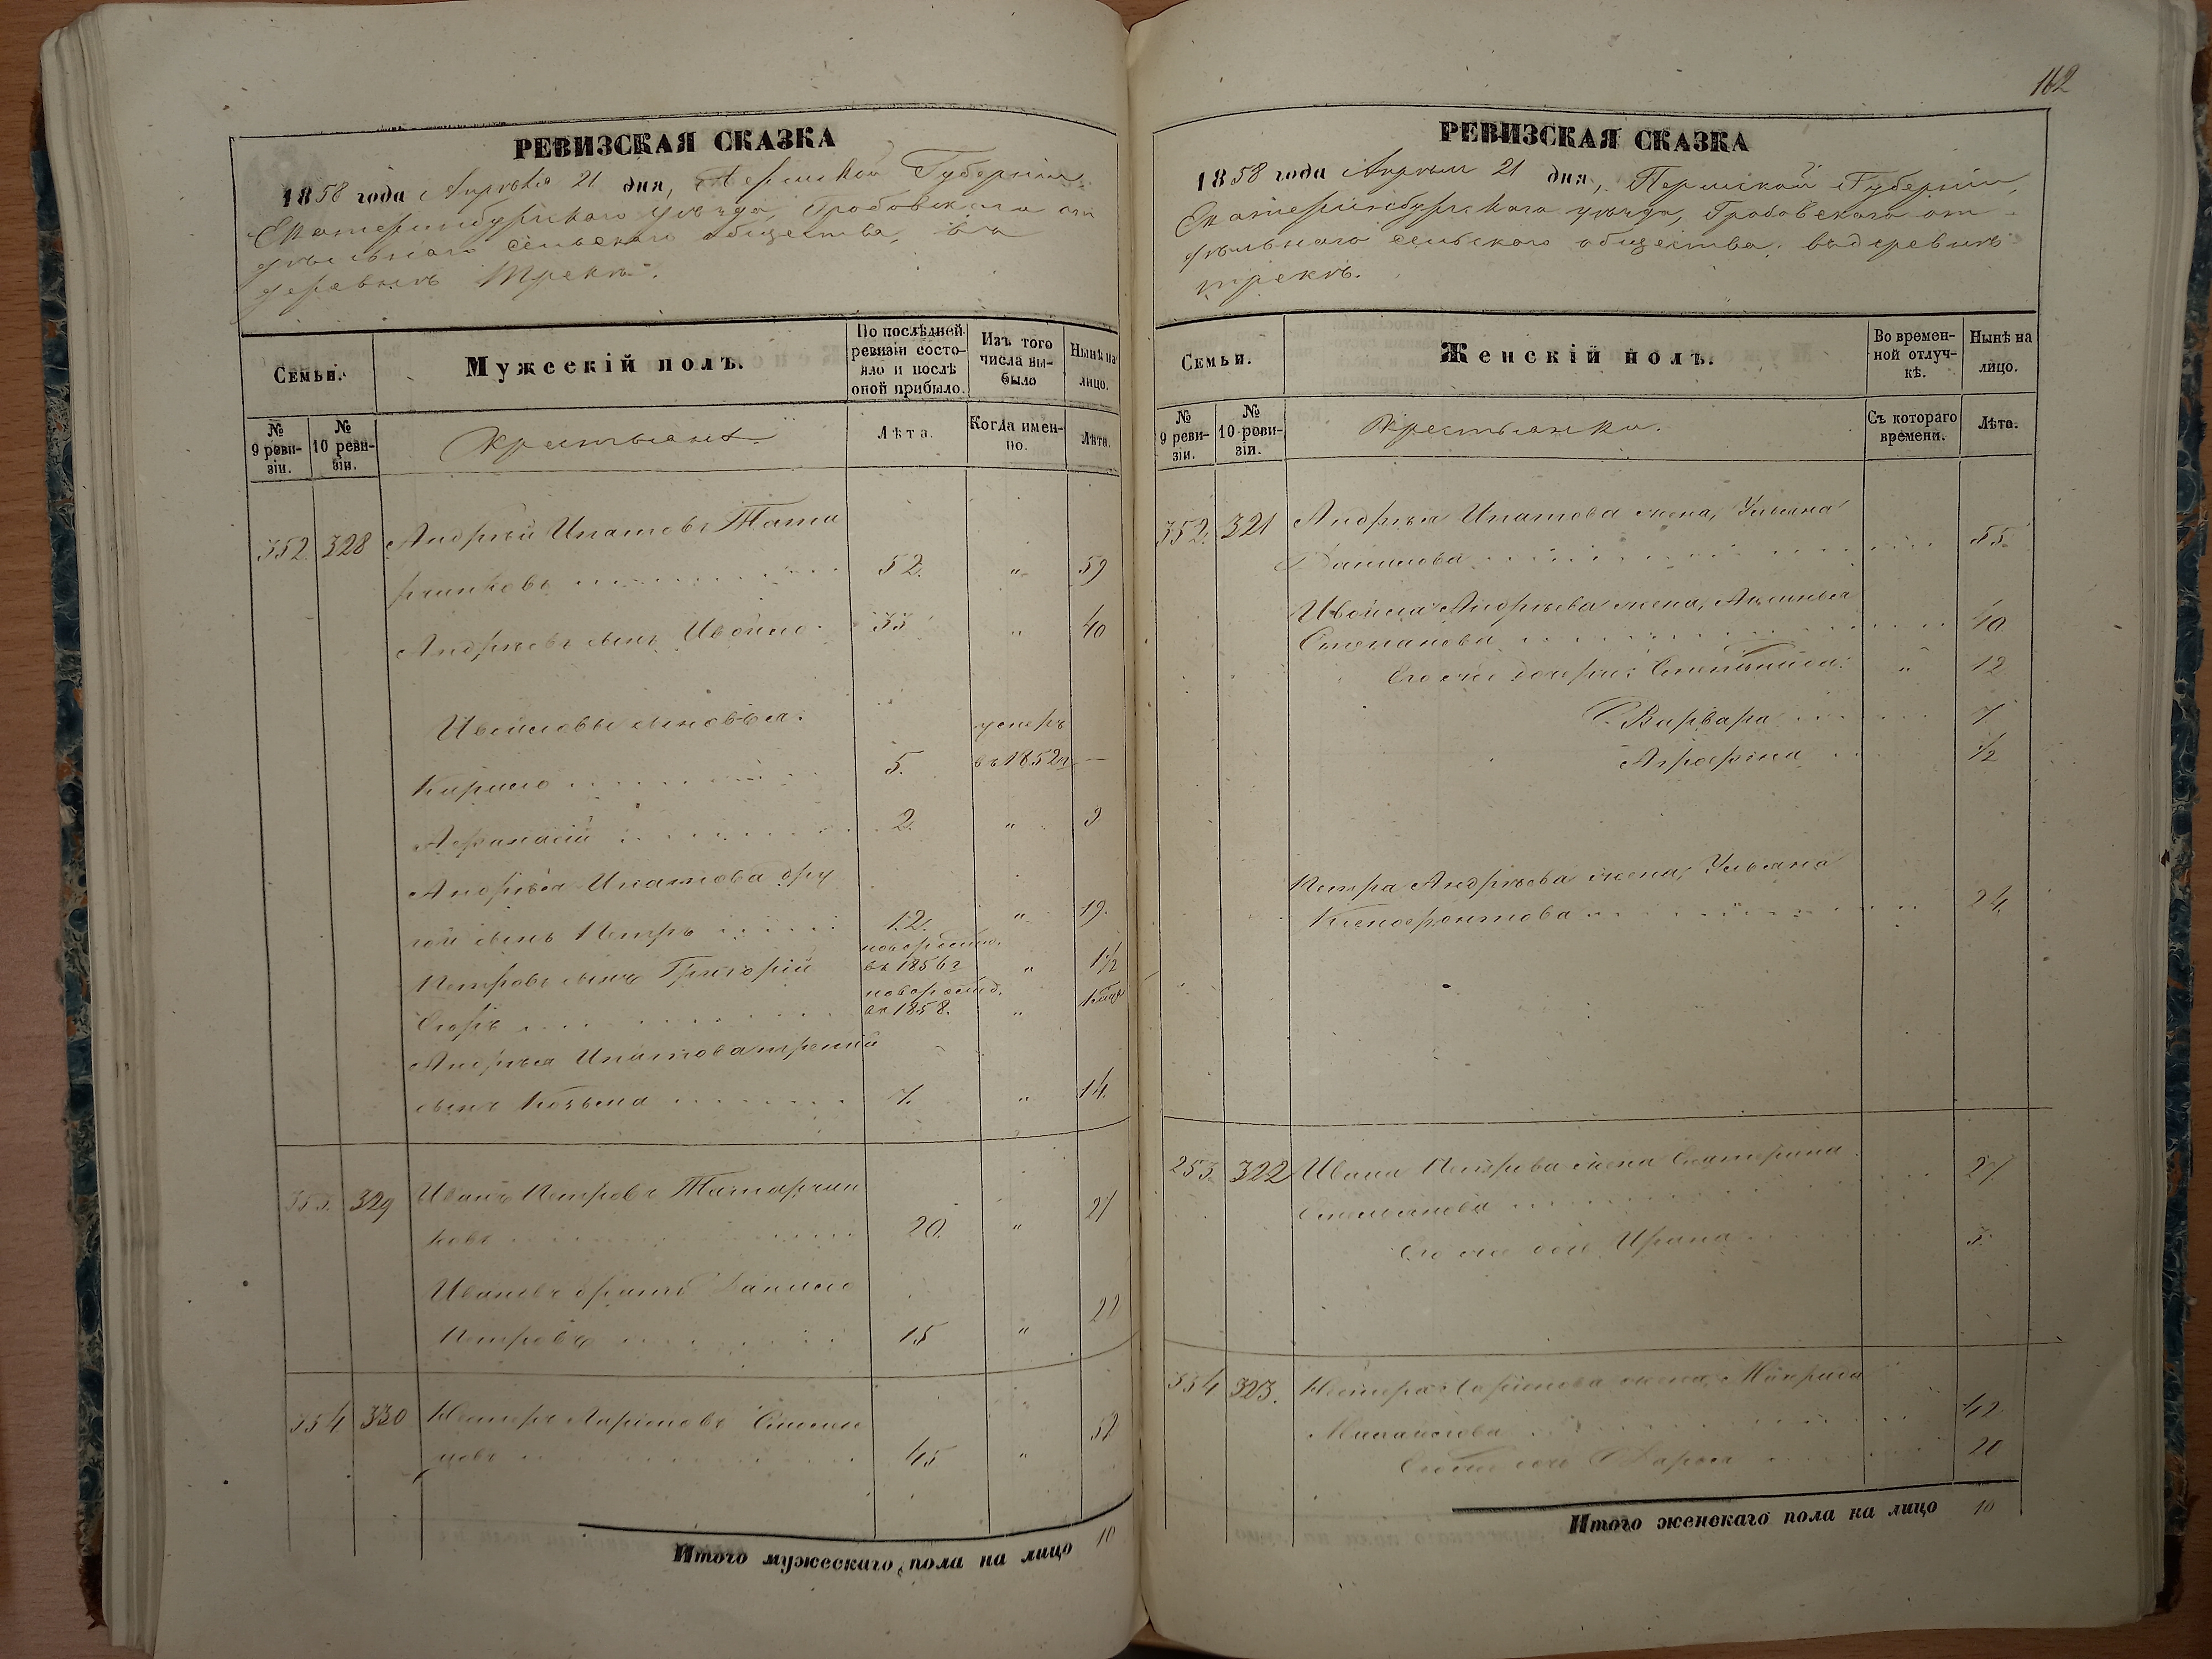 РЕВИЗСКАЯ СКАЗКА
1858 года Апрѣля 21 дня, Пермской Губернiи
Екатеринбургскаго уѣзда, Гробовскаго от
дѣльнаго сельскаго общества, въ
деревнѣ Трекѣ.
Семьи.
Мужескій полъ.
По послѣдней
ревизіи состо-
яло и послѣ
оной прибыло.
Изъ того
числа вы-
было
Нынѣ на
лицо.
№
9 реви-
зіи.
№
10 реви-
зіи.
Крестьяне
Лѣта.
Когда имен-
но.
Лѣта.
352 328 Андрѣй Ипатовъ Тата
ринковъ 52. " 59
Андрѣевъ сынъ Ивойло 33 " 40
Ивойловы сыновья. умеръ
Кирило 5. въ 1852 г. —
Афанасій 2. " 9
Андрѣя Ипатова дру
гой сынъ Петръ 12. " 19.
Петровъ сынъ Григорій новорожд. въ 1856 г " 1 1/2
Егоръ новорожд. въ 1858. "
Андрѣя Ипатова третій
сынъ Козьма 7. " 14.
353. 329 Иванъ Петровъ Татарчин
ковъ 20. " 27
Ивановъ братъ Данило
Петровъ 15 " 22
354 330 Нестеръ Ларіоновъ
45 " 52
Итого мужескаго пола на лицо 10
162
РЕВИЗСКАЯ СКАЗКА
1858 года Апрѣля 21 дня, Пермской Губерніи,
Екатеринбургскаго уѣзда, Гробовскаго от
дѣльнаго сельскаго общества, въ деревнѣ
трекѣ.
Семьи.
Женскій полъ.
Во времен-
ной отлуч-
кѣ.
Нынѣ на
лицо.
№
9 реви-
зіи.
№
10 реви-
зіи.
Крестьянки.
Съ котораго
времени.
Лѣта.
352. 321 Андрѣя Ипатова жена, Ульяна
Данилова 55.
Ивойла Андрѣева жена, Аксинья
Степанова 40
Его же дочери: " 12
Варвара 7.
Аграфена 1/2
Петра Андрѣева жена, Ульяна
Ксенофонтова 24.
253. 322 Ивана Петрова жена Екатерина
Емельянова 27.
Его же дочь Ирина 5.
354 323. Нестера Ларіонова жена,
Михайлова 42.
Его же дочь Дарья 20
Итого женскаго пола на лицо 10